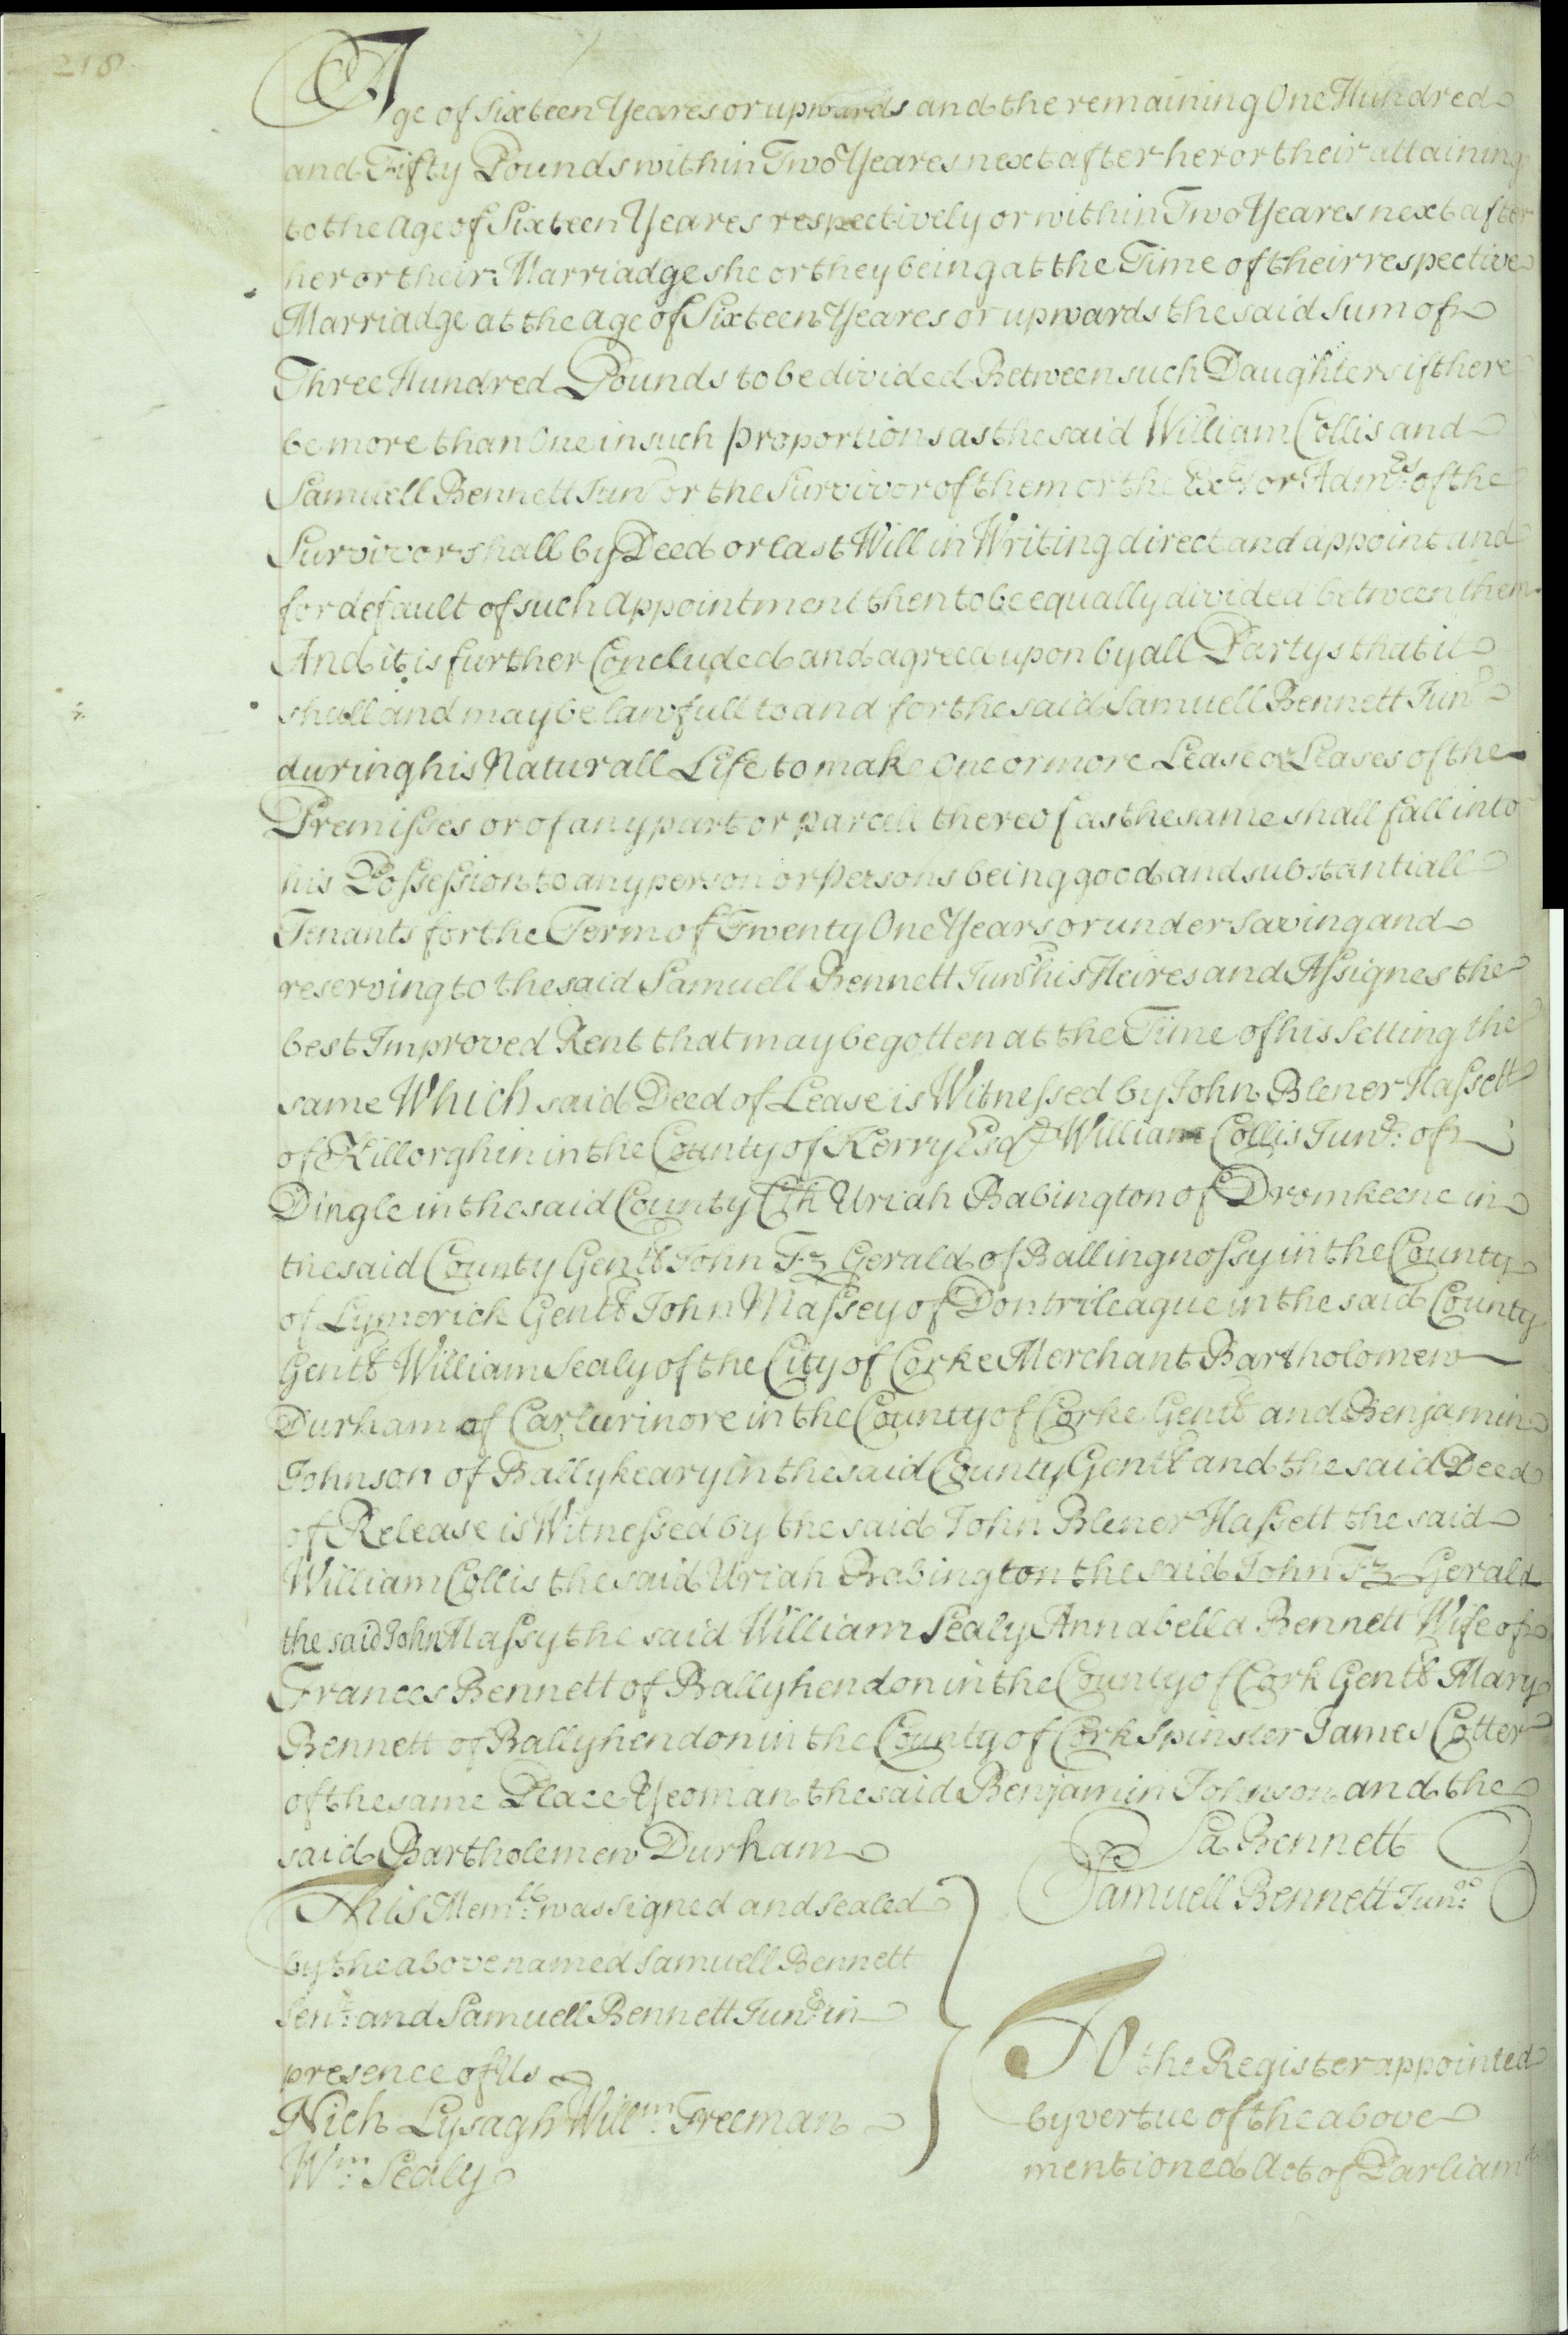 218
Age of Sixteen Yeares or upwards and the remaining One Hundred
and Fifty Pounds within Two Yeares next after her or their attaining
to the Age of Sixteen Yeares respectively or within Two Yeares next after
her or their Marriadge she or they being at the Time of their respective
Marriadge at the age of Sixteen Yeares or upwards the said Sum of
Three Hundred Pounds to be divided Between such Daughters if there
be more than One in such proportions as the said William Collis and
Samuell Bennett Junr or the Survivor of them or the Exrs or Admrs: of the
Survivor shall by Deed or last Will in Writing direct and appoint and
for default of such Appointment then to be equally divided between them
And it is further Concluded and agreed upon by all Partys that it
shall and may be lawfull to and for the said Samuell Bennett Junr
during his Naturall Life to make One or more Lease or Leases of the
Premisses or of any part or parcell thereof as the same shall fall into
his Possession to any person or persons being good and substantiall
Tenants for the Term of Twenty One Years or under saving and
reserving to the said Samuell Bennett Junr his Heires and Assignes the
best Improved Rent that may be gotten at the Time of his Setting the
same Which said Deed of Lease is Witnessed by John Blener Hassett
of Killorghin in the County of Kerry Esqr William Collis Junr: of
Dingle in the said County Clk Uriah Babington of Dromkeene in
the said County Gentt John Fz Gerald of Ballingnossy in the County
of Lymerick Gentt John Massey of Dontrileague in the said County
Gentt William Sealy of the City of Corke Merchant Bartholomew
Durham of Carlurinore in the County of Corke Gentt and Benjamin
Johnson of Ballykeary in the said County Gentt and the said Deed
of Release is Witnessed by the said John Blener Hassett the said
William Collis the said Uriah Babington the said John Fz Gerald
the said John Massy the said William Sealy Annabella Bennett Wife of
Frances Bennett of Ballyhendon in the County of Cork Gentt Mary
Bennett of Ballyhendon in the County of Cork Spinster James Cotter
of the same Place Yeoman the said Benjamin Johnson and the
said Bartholemew Durham
Sa Bennett
Samuell Bennett Junr:
This Memll: was signed and sealed
by the above named Samuell Bennett
Senr: and Samuell Bennett Junr: in
presence of Us
Nich Lysagh Willm: Freeman
Wm: Sealy
To the Register appointed
by vertue of the above
mentioned Act of Parliamt